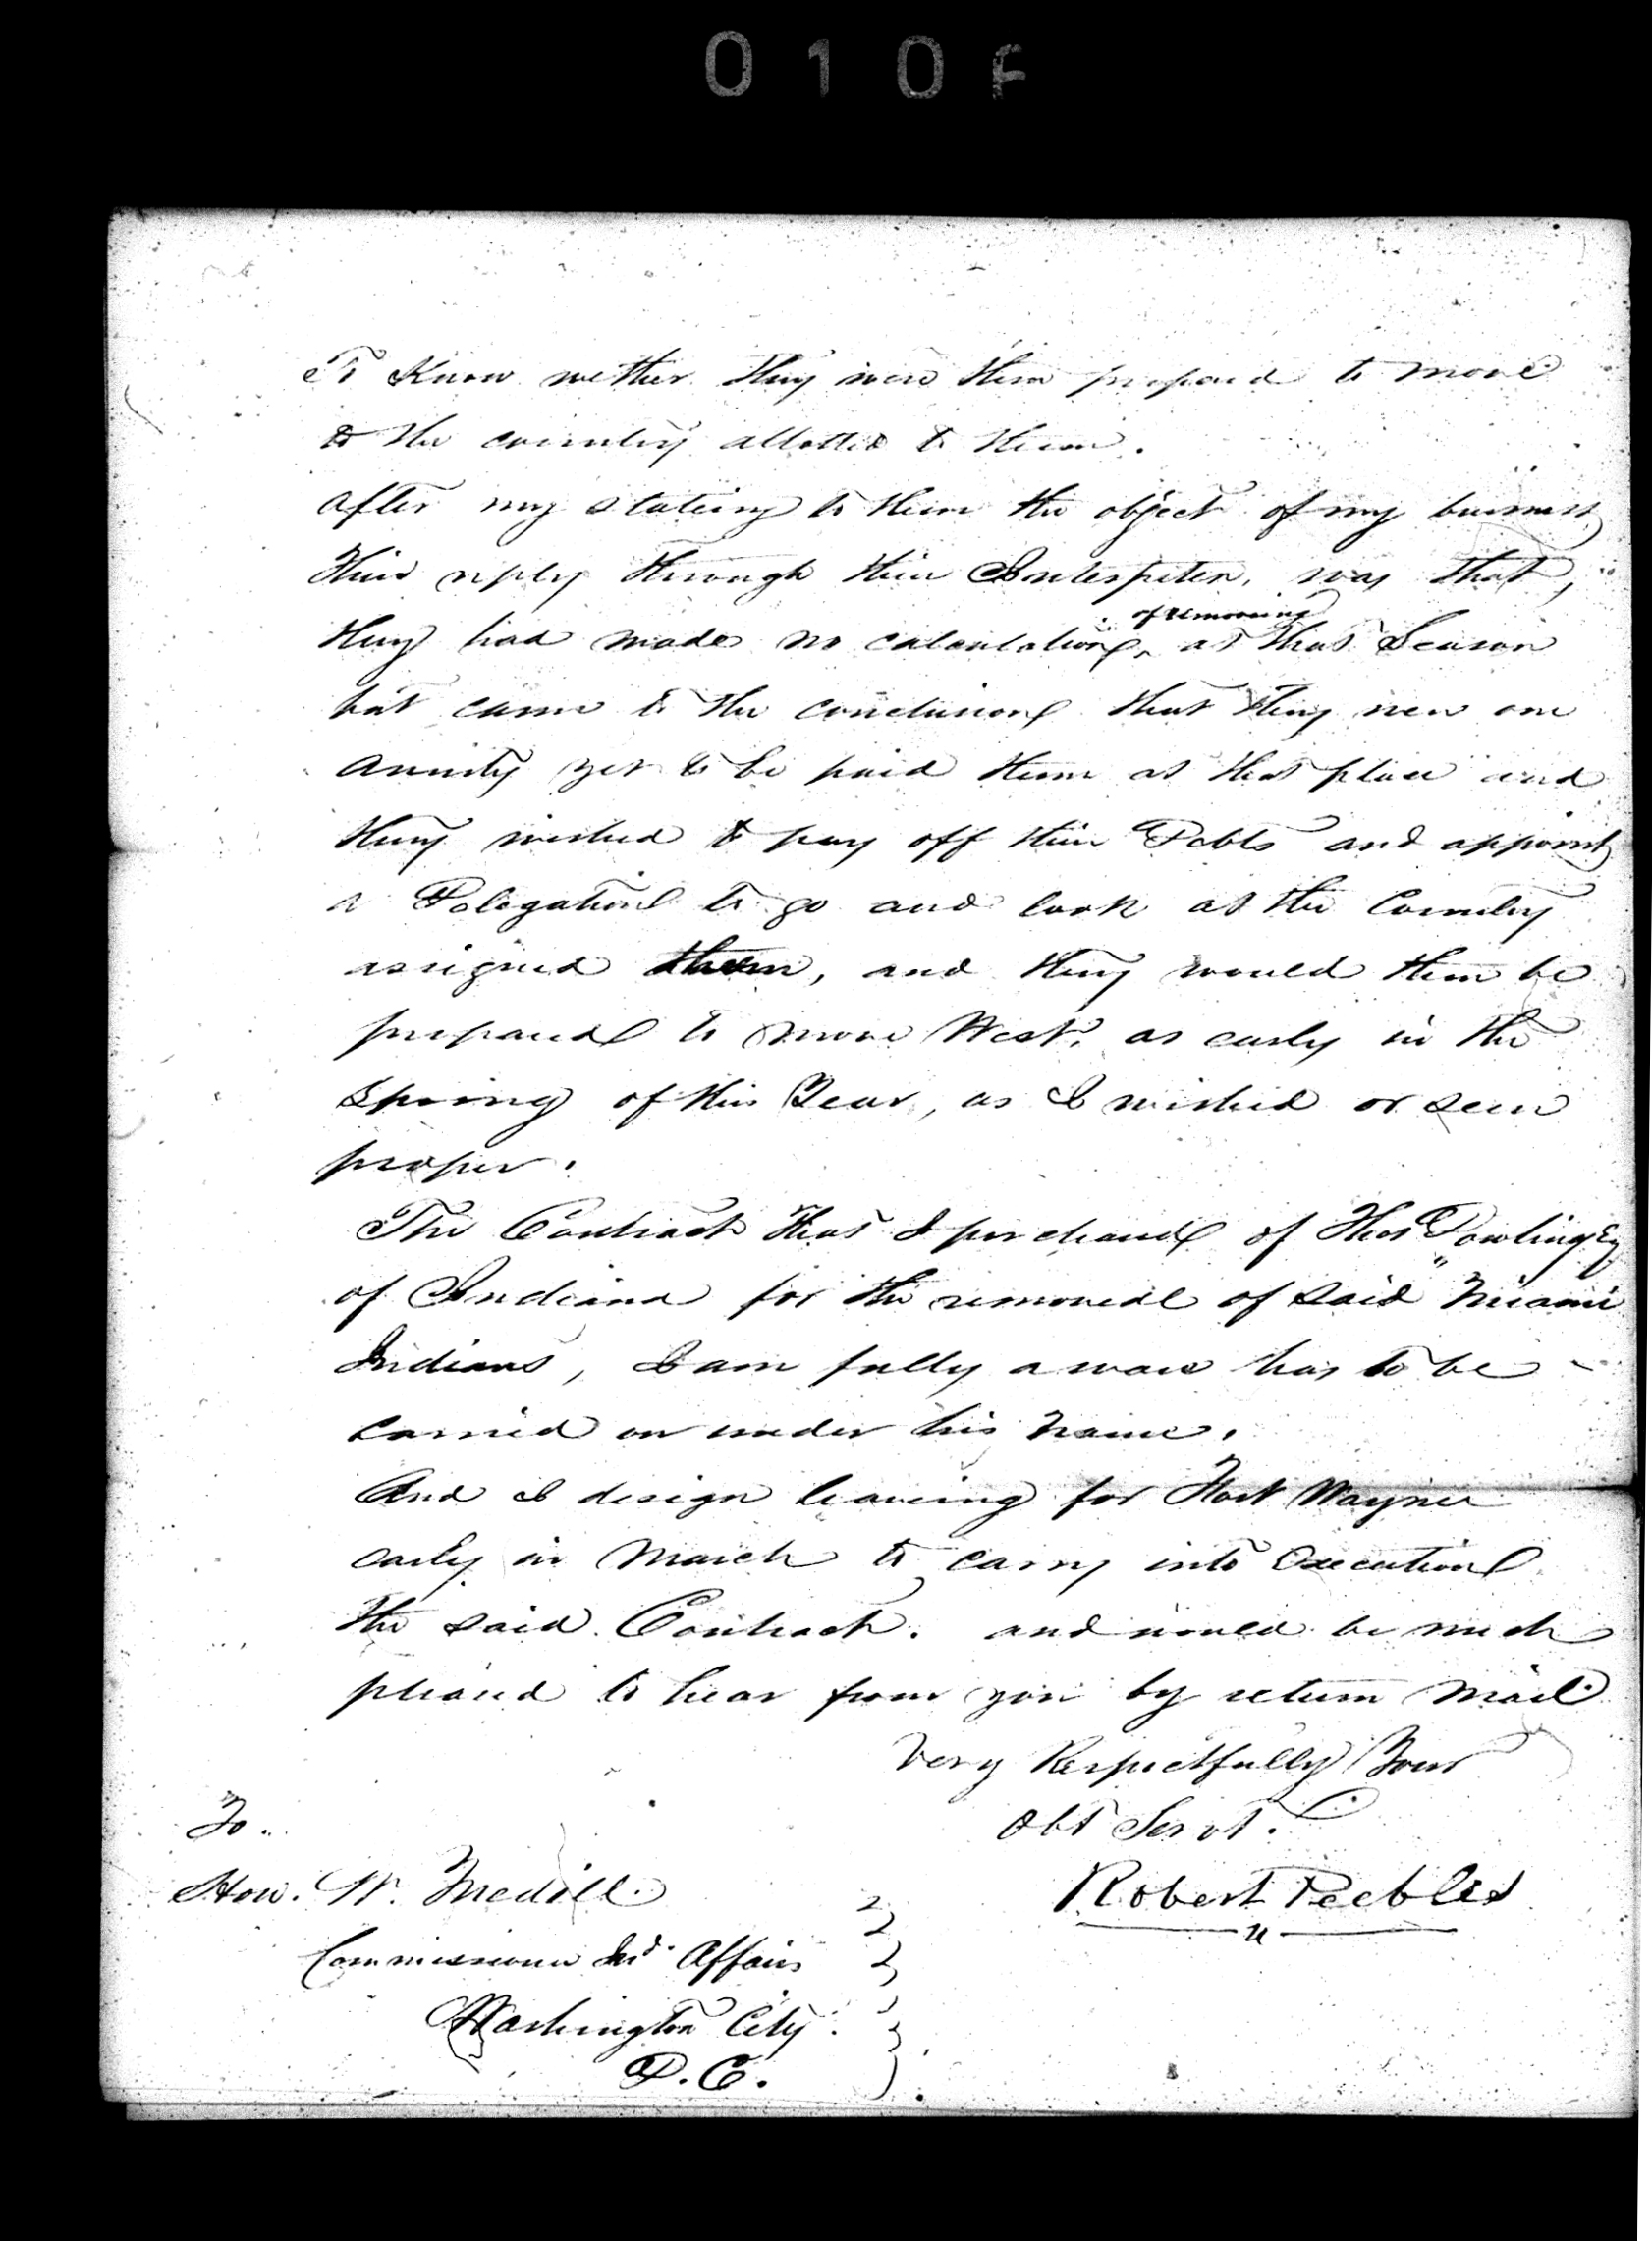 010F
To Know wether they were then prepared to move
to the country allotted to them.
after my stateing to them the object of my business
their reply through their Interpiter, was that,
of removeing
they had made no calculation, at that Season
but came to the conclusion that they were one
anuity yet to be paid them at that place and
they wished to pay off their Debts and appoint
a Delegation to go and look at the Country
assigned them, and they would then be
prepared to move West, as early in the
spring of this Year, as I wished or seen
proper.
The Contract that I purchased of Thos Dowling Esq
of Indiana for the removeal of said Miami
Indians, I am fully aware has to be
carried on under his name.
And I design leaveing for Fort Wayne
early in March to carry into Execution
the said Contract. and would be much
pleased to hear from you by return Mail.
Very Respectfully Your
Obt Servt.
To
Hon. W. Medill
Robert Peebles
Commissioner Ind. Affairs
Washington City
D.C.